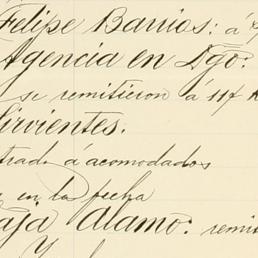 Felipe Barrios: á
Agencia en Dgo:
se remitieron á 117
Sirvientes.
trada á acomodados
en la fecha
aja Alamo: remit
Y